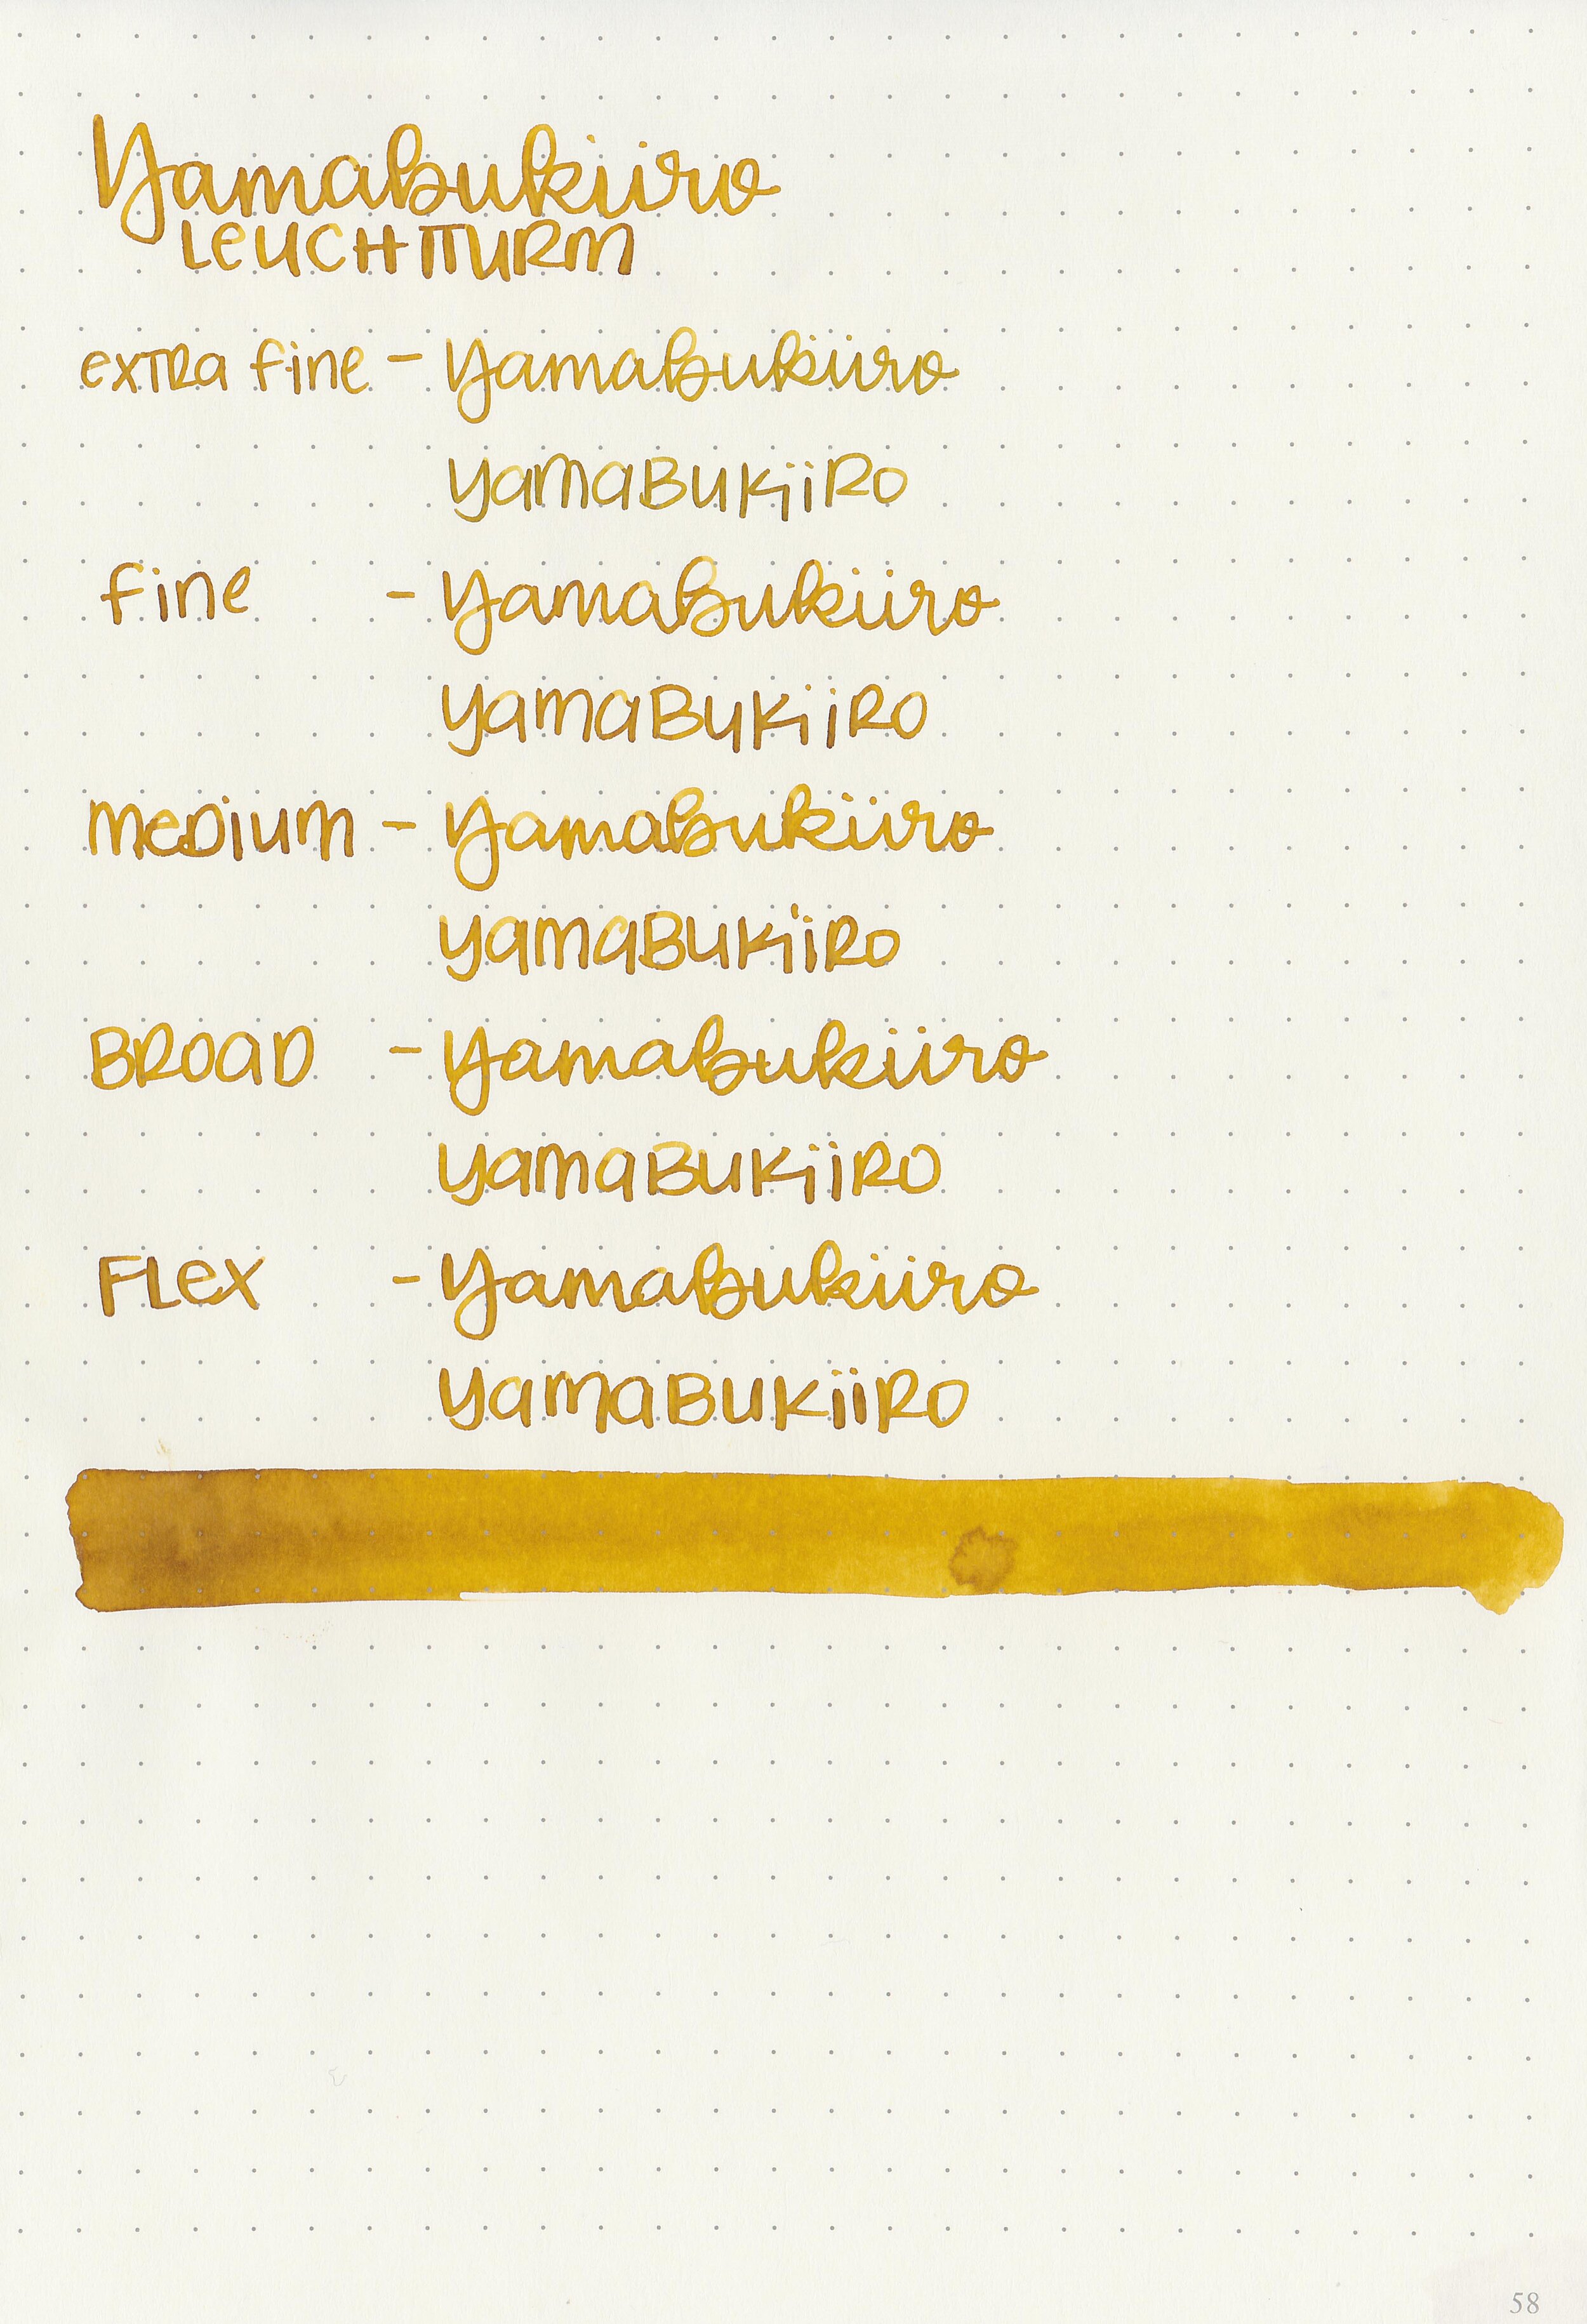 Yamabukiiro
LEUCHTTURM
extra fine - Yamabukiiro
YamaBukiiRo
fine - Yamabukiiro
YamaBukiiRo
medium - Yamabukiiro
YamaBukiiRo
BROAD - Yamabukiiro
YamaBukiiRo
FLex - Yamabukiiro
YamaBukiiRo
58